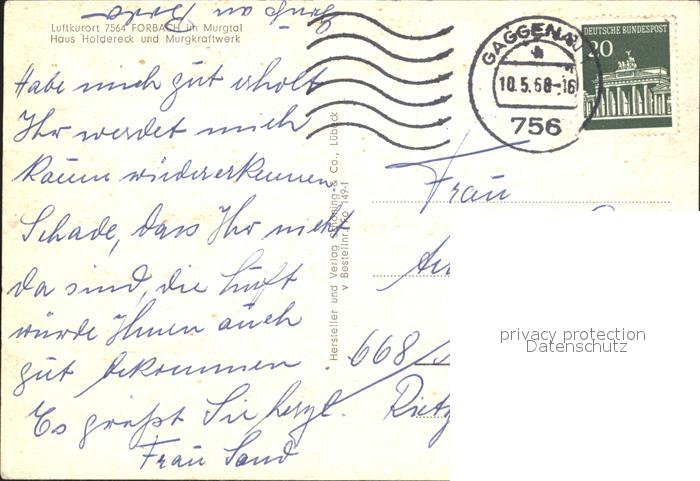 Luftkurort 7564 FORBACH im Murgtal
Haus Holdereck und Murgkraftwerk
Habe mich gut erholt
Ihr werdet mich
kaum wiedererkennen.
Schade, dass Ihr nicht
da sind, die Luft
würde Ihnen auch
gut bekommen.
Es grüßt Sie herzl.
Frau Sand
Hersteller und Verlag Schöning & Co., Lübeck
v Bestellnr. Fo 149-f
GAGGENAU
10.5.68-16
756
DEUTSCHE BUNDESPOST
20
Frau
668/
privacy protection
Datenschutz